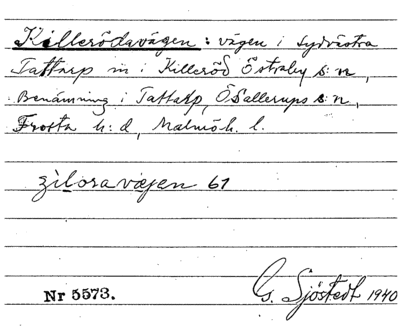 Killerödavägen: vägen i sydvästra
Tattarp in i Killeröd Östraby s:n,
Benämning i Tattarp, Ö Sallerups s:n,
Frosta h:d, Malmöh. l.
61
Nr 5573. G. Sjöstedt 1940